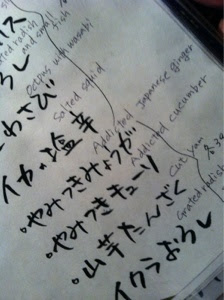 radish
and small
fish
ろし
with wasabi
わさび
Salted squid
イカの塩辛
Addicted Japanese ginger
・やみつきみょうが
Addicted cucumber
・やみつきキューリ
Cut yam
・山芋たんざく
Grated radish
イクラおろし